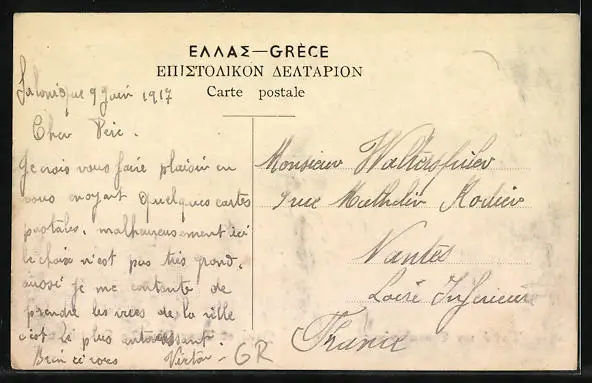 ΕΛΛΑΣ—GRÈCE
ΕΠΙΣΤΟΛΙΚΟΝ ΔΕΛΤΑΡΙΟΝ
Carte postale
Salonique 9 Juin 1917
Cher Père.
Je crois vous faire plaisir en
vous envoyant quelques cartes
postales. malheureusement ici
le choix n'est pas très grand.
aussi je me contante de
prendre les vues de la ville
c'est le plus interessant.
à vous
GR
Monsieur
rue Mathelin Rodier
Nantes
Loire Inferieure
France